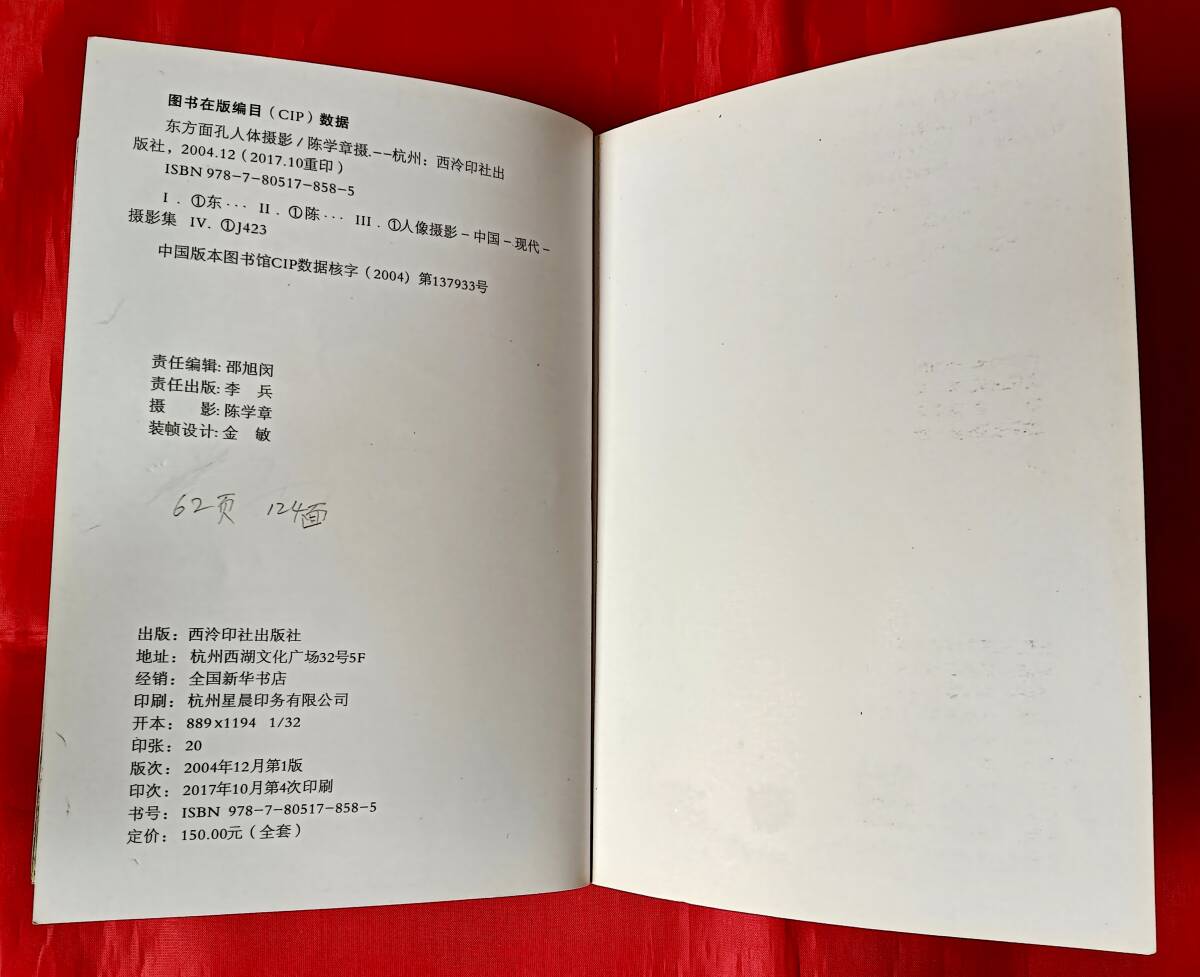 图书在版编目（CIP）数据
东方面孔人体摄影 / 陈学章摄.--杭州：西泠印社出
版社，2004.12（2017.10重印）
ISBN 978-7-80517-858-5
I．①东··· II．①陈··· III．①人像摄影－中国－现代－
摄影集 IV．①J423
中国版本图书馆CIP数据核字（2004）第137933号
责任编辑: 邵旭闵
责任出版: 李 兵
摄 影: 陈学章
装帧设计: 金 敏
62页 124面
出版：西泠印社出版社
地址：杭州西湖文化广场32号5F
经销：全国新华书店
印刷：杭州星晨印务有限公司
开本：889x1194 1/32
印张：20
版次：2004年12月第1版
印次：2017年10月第4次印刷
书号：ISBN 978-7-80517-858-5
定价：150.00元（全套）